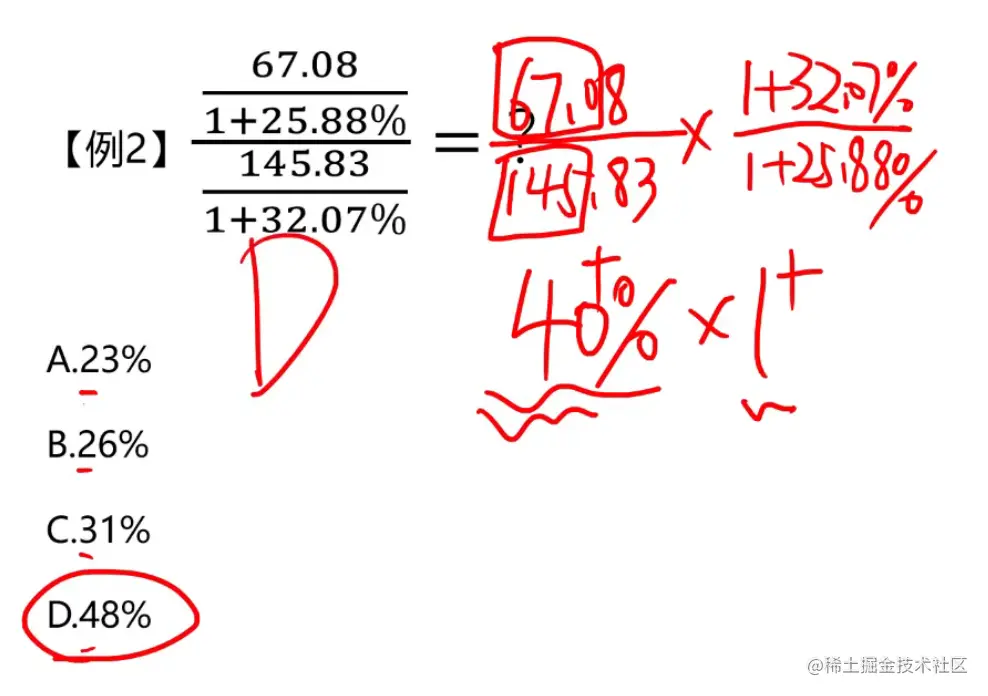 【例2】 67.08/(1+25.88%) / 145.83/(1+32.07%) = 67.08/145.83 × 1+32.07%/1+25.88%
D 40⁺% × 1⁺
A.23%
B.26%
C.31%
D.48%
@稀土掘金技术社区